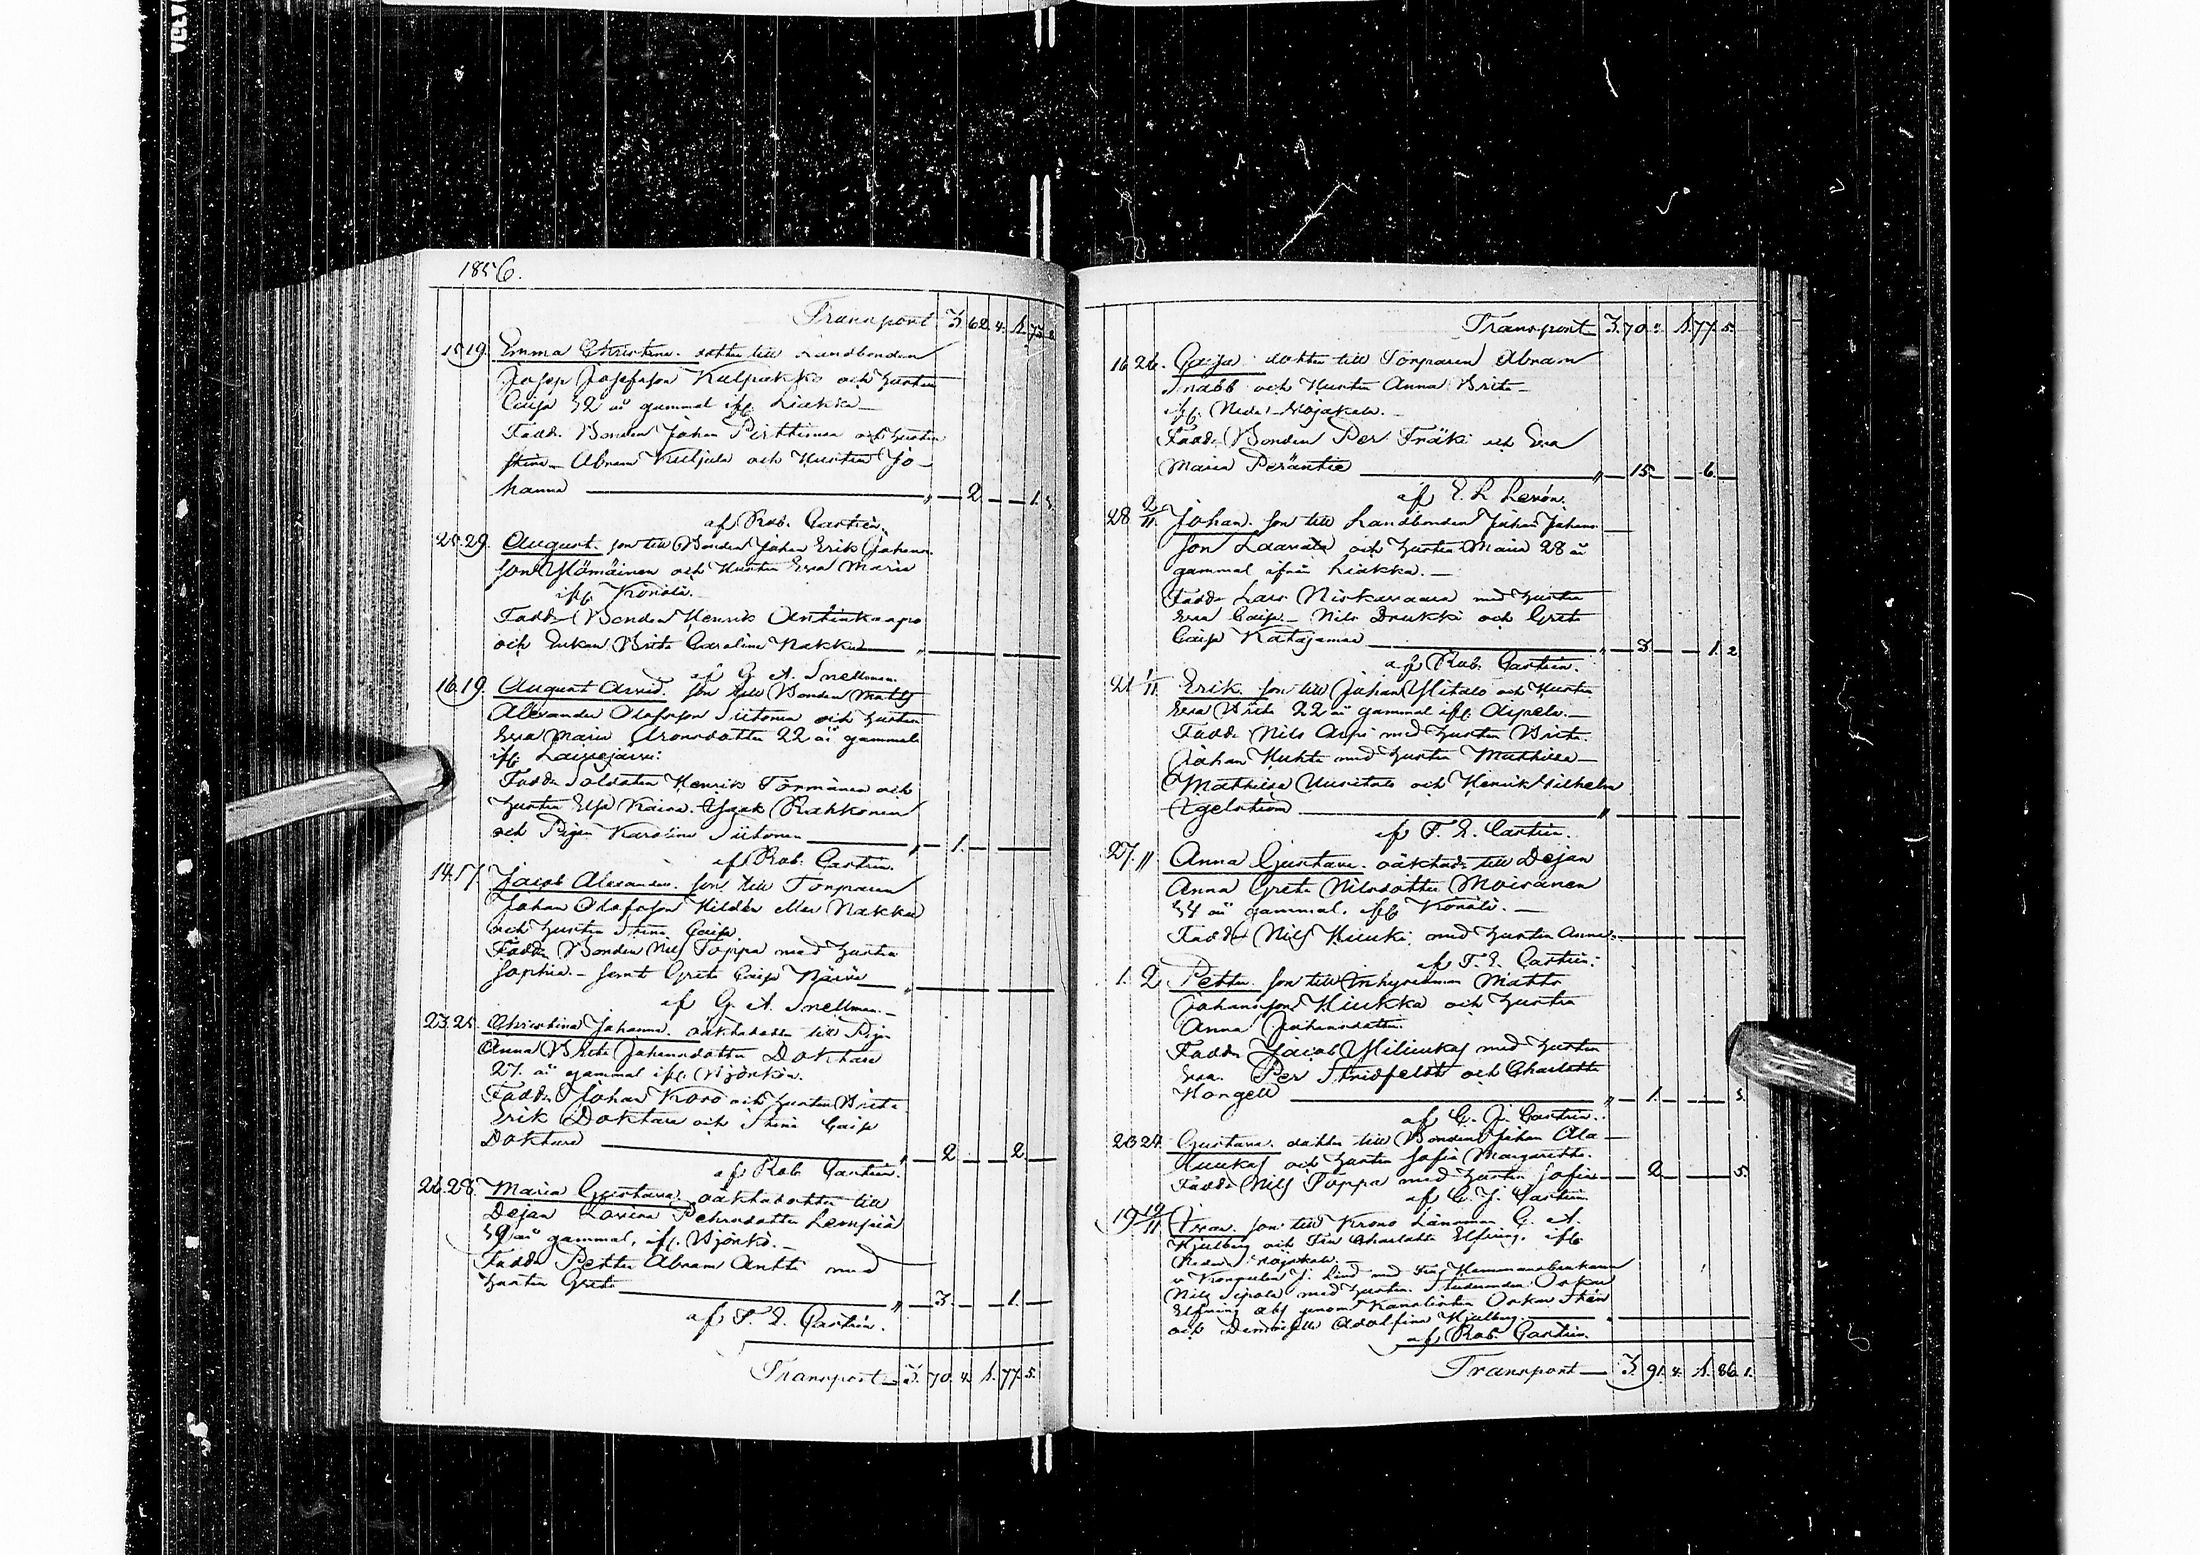 1856.
Transport 3. 62. 4. S. 73.
15. 19. Emma Christina. dotter till Landbonden
Josep Josefsson Kulpakko och hustru
Caisa 32 år gammal ifr. Liakka
Fadd. Bonden Johan Pirttinen och hustru
Stina Abram Kuljula och Hustru Jo-
hanna " 2 1.
af Rob. Castrén.
25. 29. August. son till Bonden Johan Erik Johans-
son Ylömäinen och Hustru Eva Maria
ifr. Könölä.
Fadd. Bonden Henrik Anttinkaapo
och Enkan Brita Carolina Nakku "
af G. A. Snellman.
16. 19. August Arvid. Son till Bonden Matts
Alexander Olofsson Siitonen och hustru
Eva Maria Aronsdotter 22 år gammal
ifr. Laivajärvi:
Fadd. Soldaten Henrik Törmänen och
hustru Elsa Kaisa. Isaak Rahkonen
och Pigan Karolina Siitonen " 1.
af Rob. Castrén.
14. 17. Jacob Alexander. Son till Torparen
Johan Olofsson Hildén eller Nakku
och hustru Stina Caisa
Fadd. Bonden Nils Poppa med hustru
Sophia. - samt Greta Caisa "
af G. A. Snellman.
23. 25. Christina Johanna. oäkta dotter till Pigan
Anna Brita Johansdotter Doktare
27. år gammal ifr. Björkön.
Fadd. Johan Koro och hustru Brita
Erik Doktare och Stina Caisa
Doktare " 2. 2.
af Rob. Castrén.
26. 28. Maria Gustava. oäkta dotter till
Dejan Lovisa Pehrsdotter
39 år gammal, ifr. Björkö.
Fadd. Petter Abram Antti med
hustru Greta " 3. 1.
af F. E. Castrén.
Transport 3. 70. 4. S. 77. 5.
Transport 3. 70. 4. S. 77. 5.
16. 26. Cajsa dotter till Torparen Abram
Snabb och Hustru Anna Brita
ifr. Neder-Vojakala.
Fadd. Bonden Per Fräki och Eva
Maria Peräntie " 15. 6.
af E. L. Levón.
28. 2/11. Johan. Son till Landbonden Johan Johans-
son Laanala och hustru Maria 28 år
gammal ifrån Liakka.
Fadd. Lars Niskavaara med hustru
Eva Caisa. Nils Drukki och Greta
Caisa Katajamaa " 3 1. 2
af Rob. Castrén.
21 1/11. Erik. son till Johan Ylitalo och Hustru
Eva Brita 22 år gammal ifr. Arpela.
Fadd. Nils Arpi med hustru Brita.
Johan Huhta med hustru Mathilda
Mathilda Uusitalo och Henrik Vilhelm
Egelström "
af F. E. Castrén.
27. " Anna Gustava. oäkta d. till Dejan
Anna Greta Nilsdotter Moisanen
34 år gammal. ifr. Könölä.
Fadd. Nils Hiuki med hustru Anna.
af F. E. Castrén.
1. 2. Petter. son till Inhysesman Matts
Johansson Hiukka och hustru
Anna Johansdotter.
Fadd. Jacob Yliliuka med hustru
Eva. Per Stridfeldt och Charlotta
Hongell " 1. 3.
af C. J. Castrén.
23 24. Gustava. dotter till Bonden Johan Ala-
liukas och hustru Sofia Margaretha.
Fadd. Nils Poppa med hustru Sofia 2. 5.
af C. J. Castrén
19 19/11 Ivar. son till Krono Länsman G. A.
Hjulberg och Fru Charlotta Elfving. ifr.
Neder Vojakala.
J. Lind med Fru, Hemmansbrukaren
Nils Sipola med hustru. Studeranden Oskar
Elfving abs. genom Kanslisten Oskar Stén
och Demoiselle Adolfina Hjulberg "
af Rob. Castrén.
Transport 3. 91. 4. S. 86. 1.